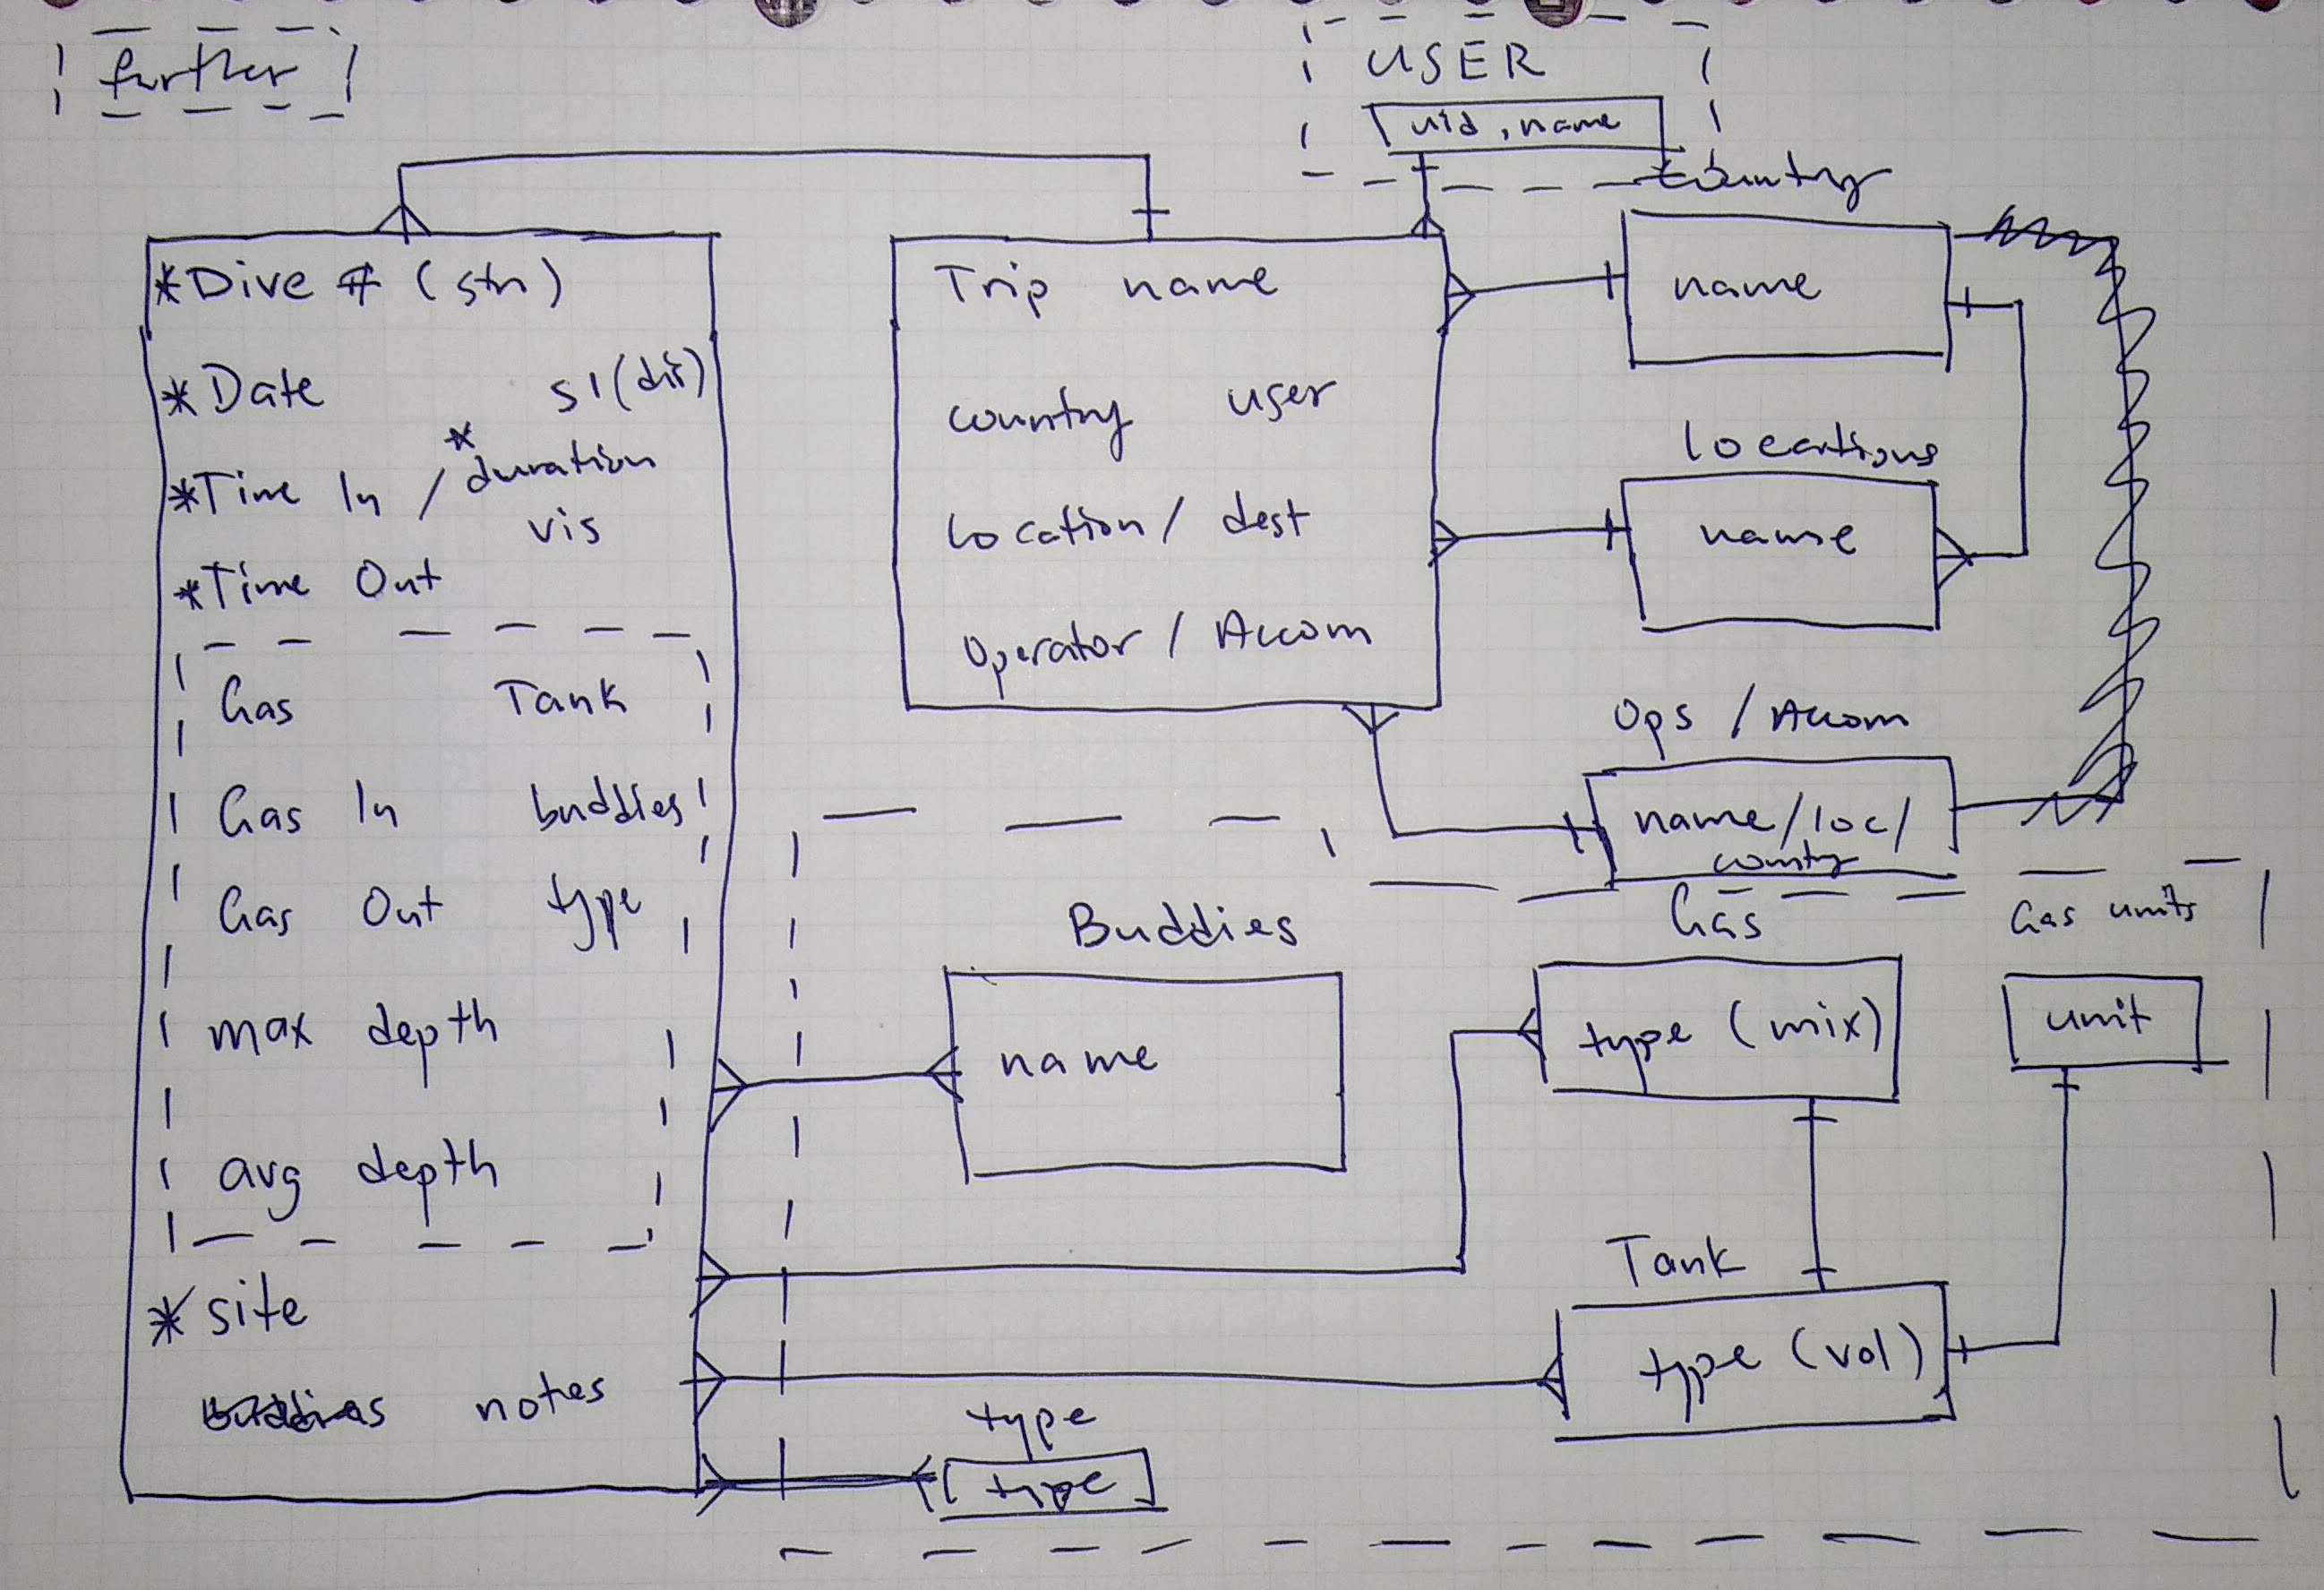 further
USER
uid, name
Country
*Dive # (str)
*Date SI (dis)
*Time In / *duration
vis
*Time Out
Gas Tank
Gas In buddies
Gas Out type
max depth
avg depth
*site
buddies notes
Trip name
country user
location / dest
operator / Accom
name
locations
name
Ops / Accom
name/loc/
country
Buddies
name
Gas
type (mix)
Gas units
unit
Tank
type (vol)
type
type